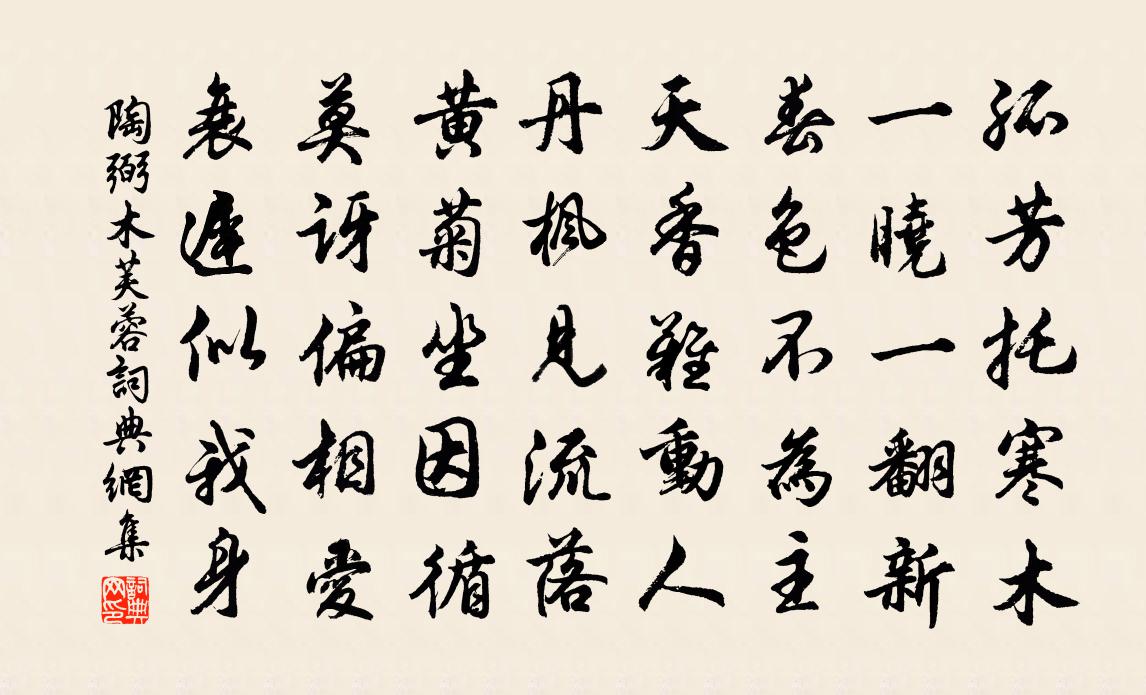 孤芳托寒木
一曉一翻新
春色不為主
天香難動人
丹楓見流落
黃菊坐因循
莫訝偏相愛
衰遲似我身
陶弼木芙蓉詞典網集
詞典网印